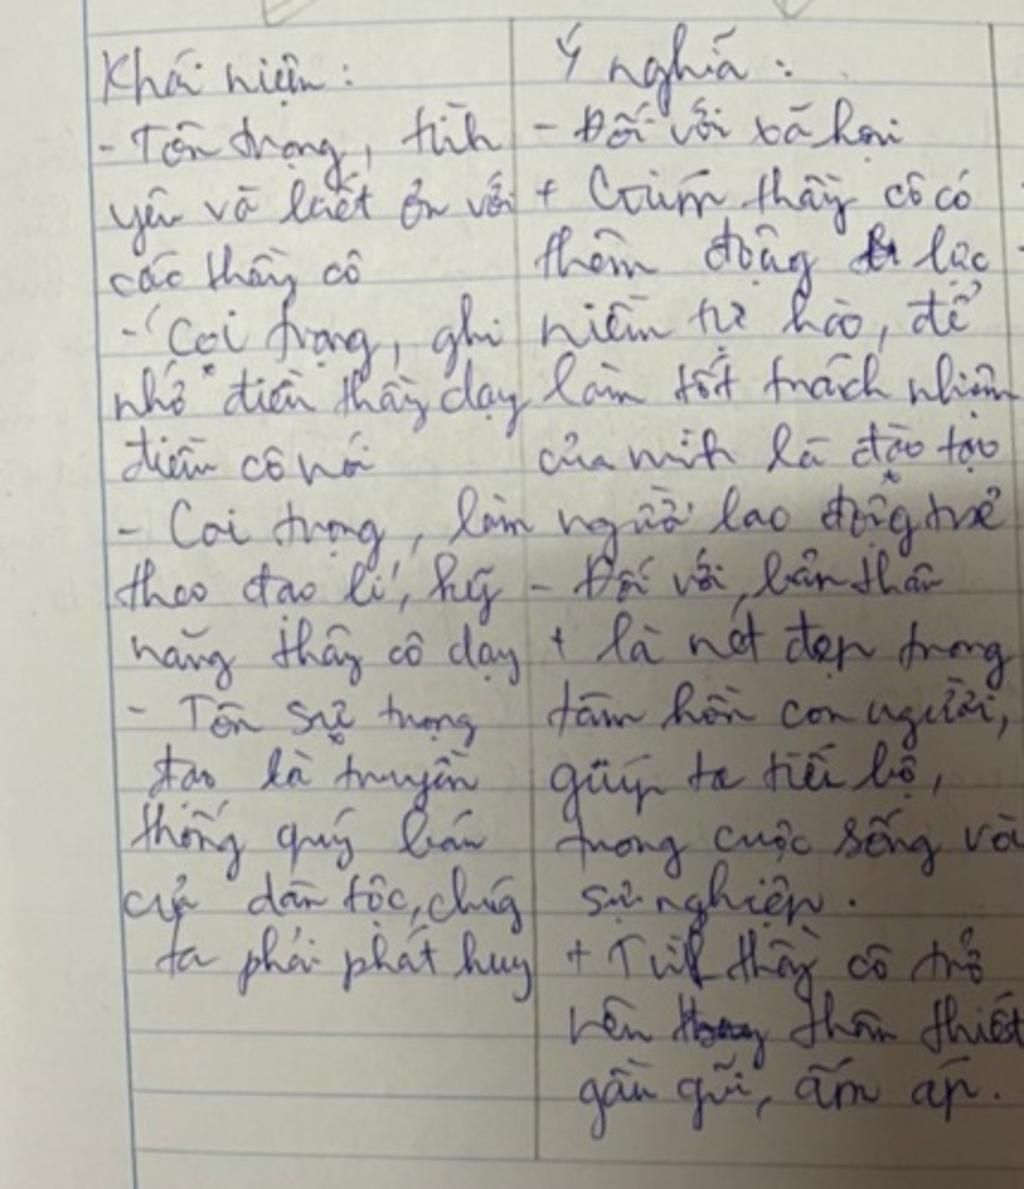 Khái niệm:
- Tôn trọng, tình
yêu và biết ơn với
các thầy cô
- Coi trọng, ghi
nhớ điều thầy dạy
điều cô nói
- Coi trọng, làm
theo đạo lí, kỹ
năng thầy cô dạy
- Tôn sự trọng
đạo là truyền
thống quý báu
của dân tộc, chúng
ta phải phát huy
Ý nghĩa:
- Đối với xã hội
+ Giúp thầy cô có
thêm động lực
niềm tự hào, để
làm tốt trách nhiệm
của mình là đào tạo
người lao động trẻ
- Đối với bản thân
+ là nét đẹp trong
tâm hồn con người,
giúp ta tiến bộ,
trong cuộc sống và
sự nghiệp.
+ Tình thầy cô trở
nên thân thiết
gần gũi, ấm áp.